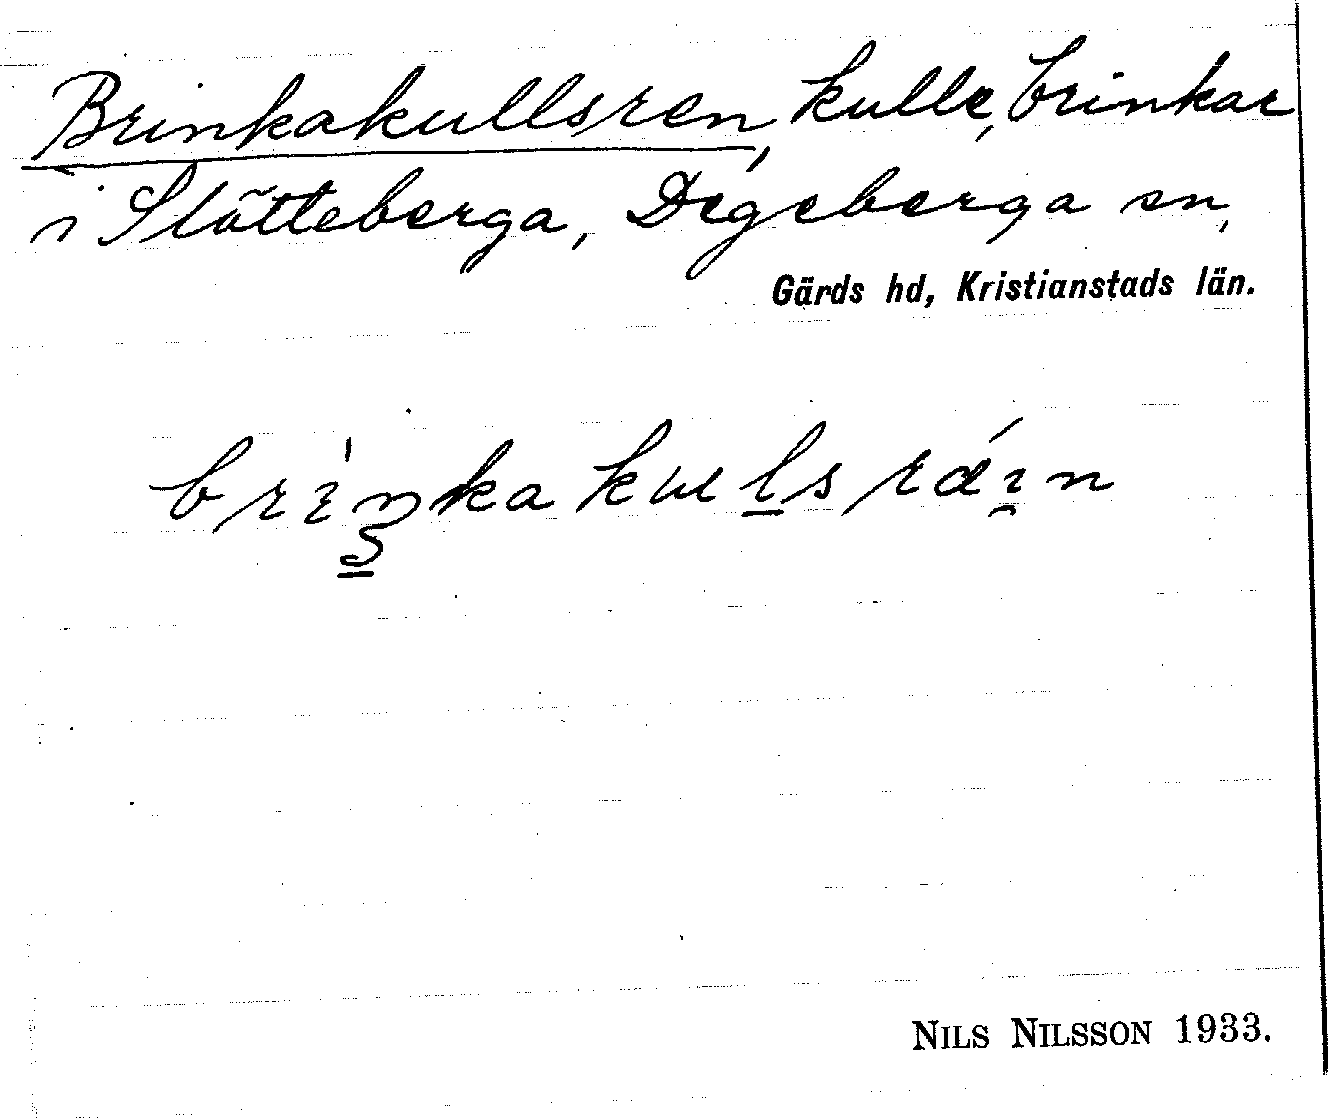 Brinkakullsren, kulle, brinkar
i Slötteberga, Degeberga sn,
Gärds hd, Kristianstads län.
NILS NILSSON 1933.